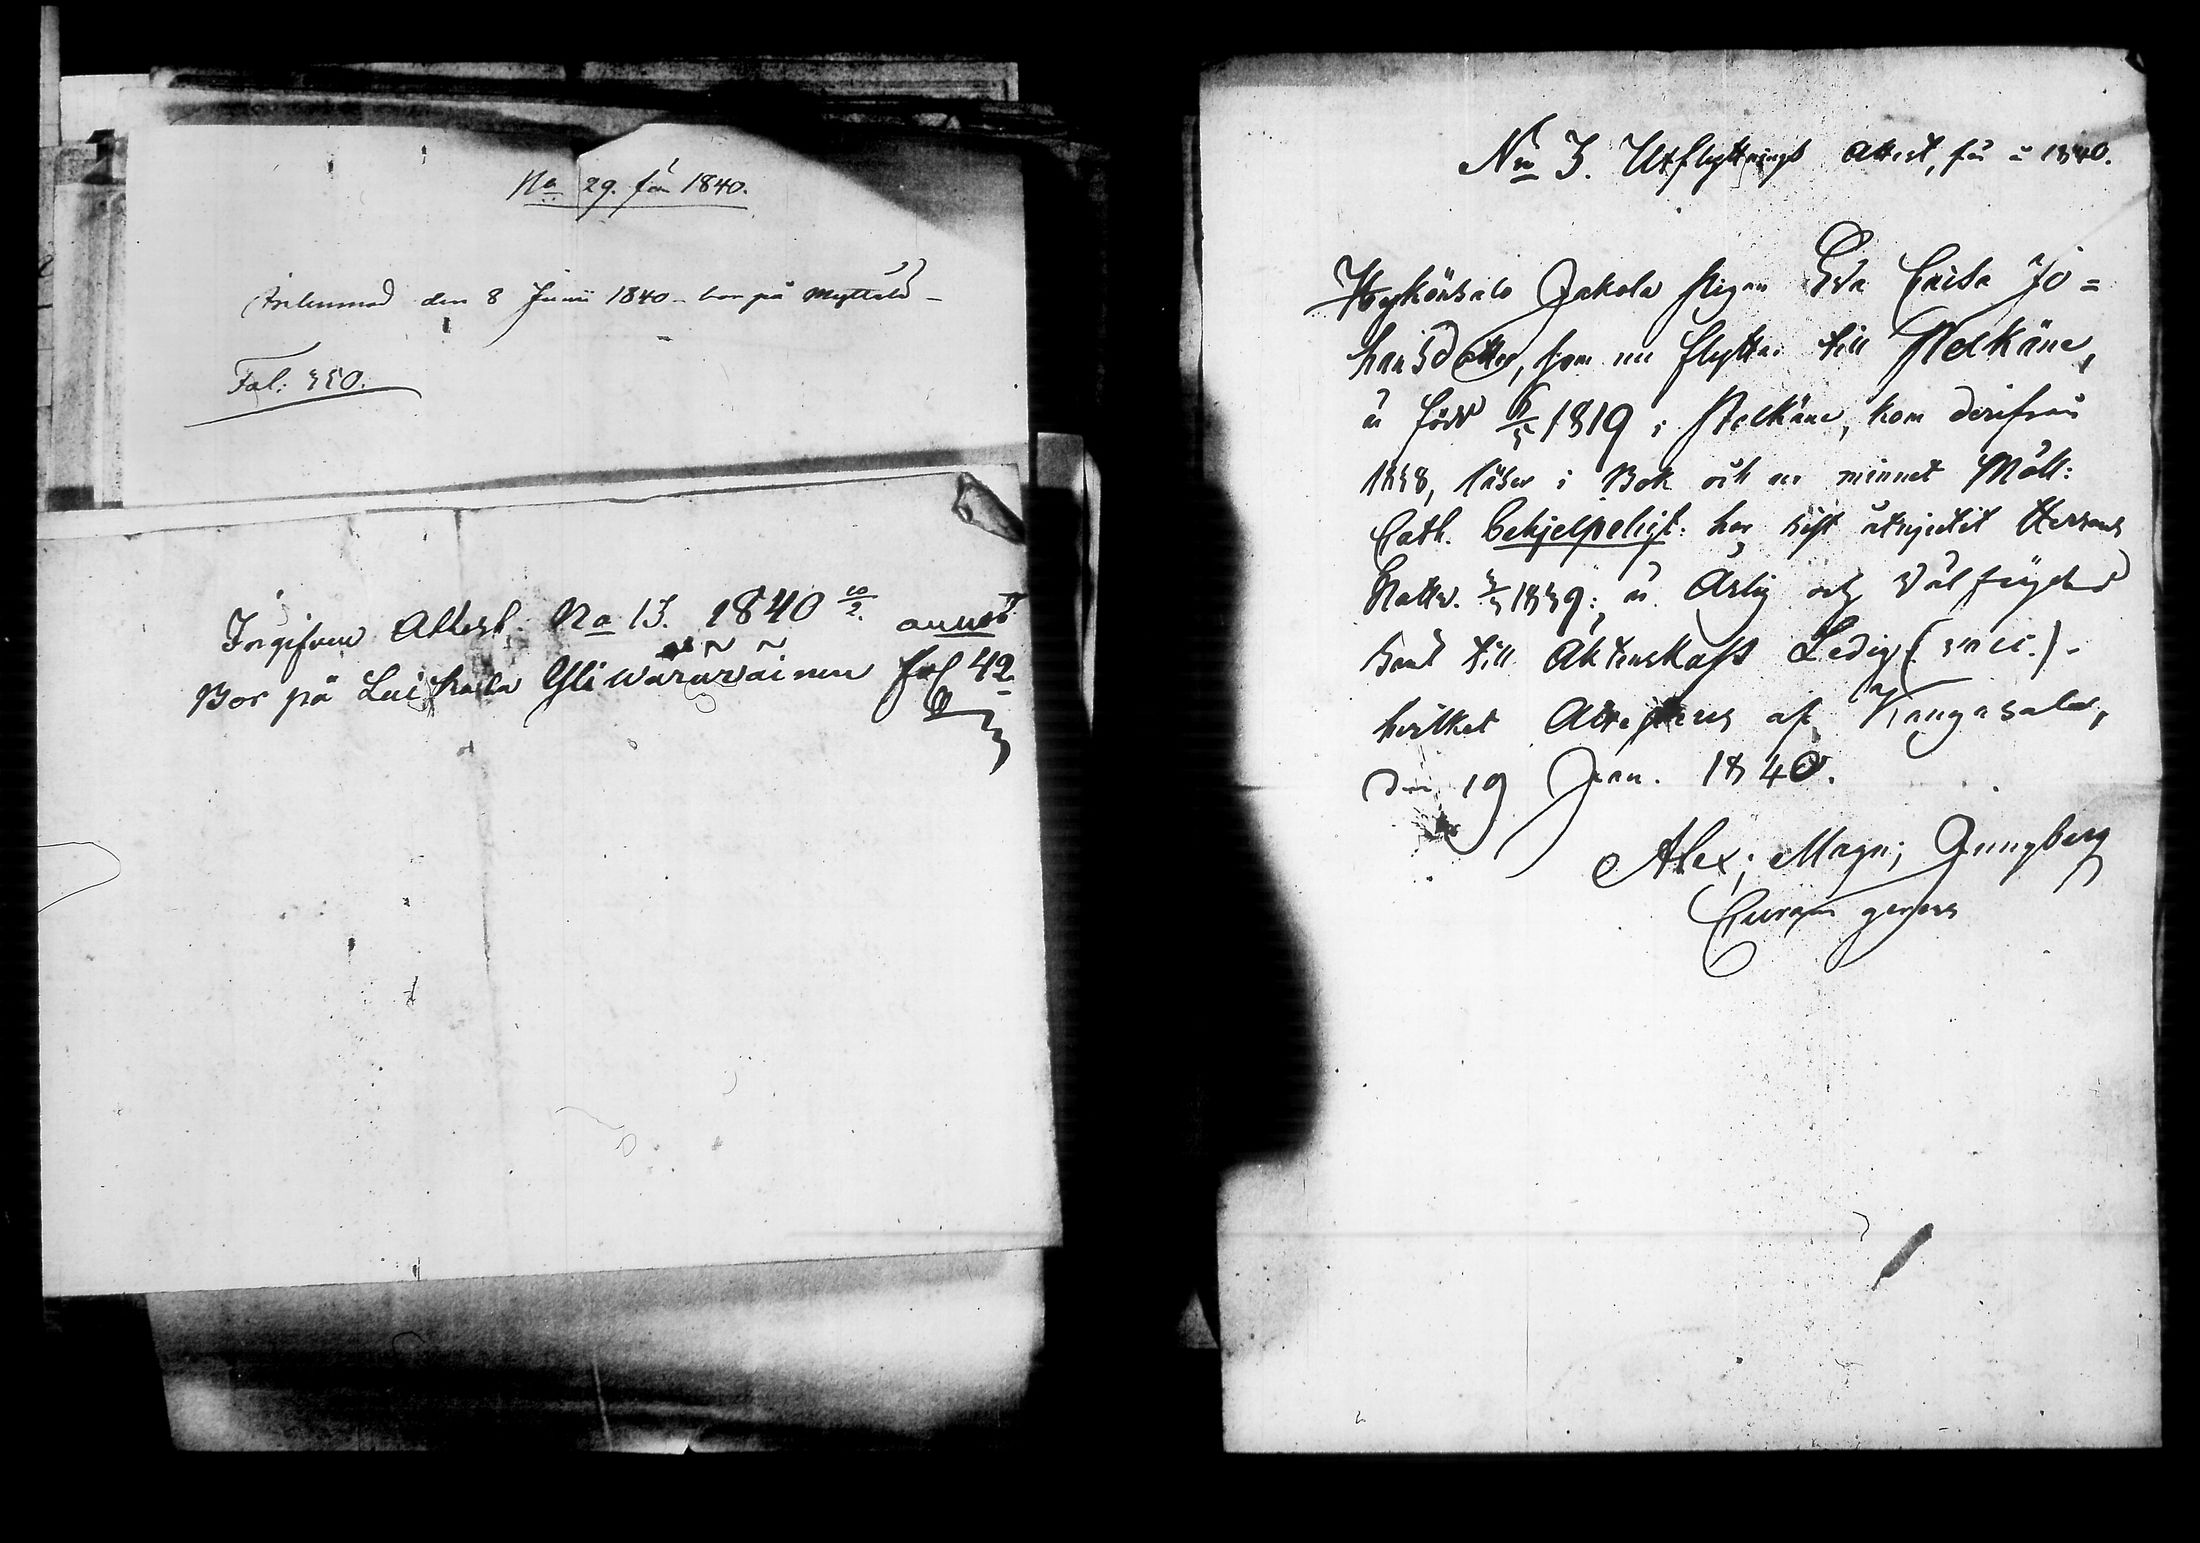 No 29. för 1840.
den 8 Junii 1840 - bor på Myttälä -
Fol: 550.
Ingifven Attest. No 13. 1840 20/2. annot
Bor på Laitkala Yliwäräväinen fol 42
No 3. Utflyttnings Attest, för år 1840.
Jakola Pigan Eva Caisa Jo=
hansdotter, som nu flyttar till Pelkäne,
är född 6/5 1819 i Pelkäne, kom derifrån
1838, läser i Bok och ur minnet
Cath. behjelpeligt: har sist åtnjutit Herrans
Nattv. 1839: är Ärlig och Välfrägdad
samt till Äktenskap Ledig (vacc.) -
hvilket Attesteras af Kangasala,
den 19 Jan. 1840.
Alex: Magn: Ljungberg
gerens